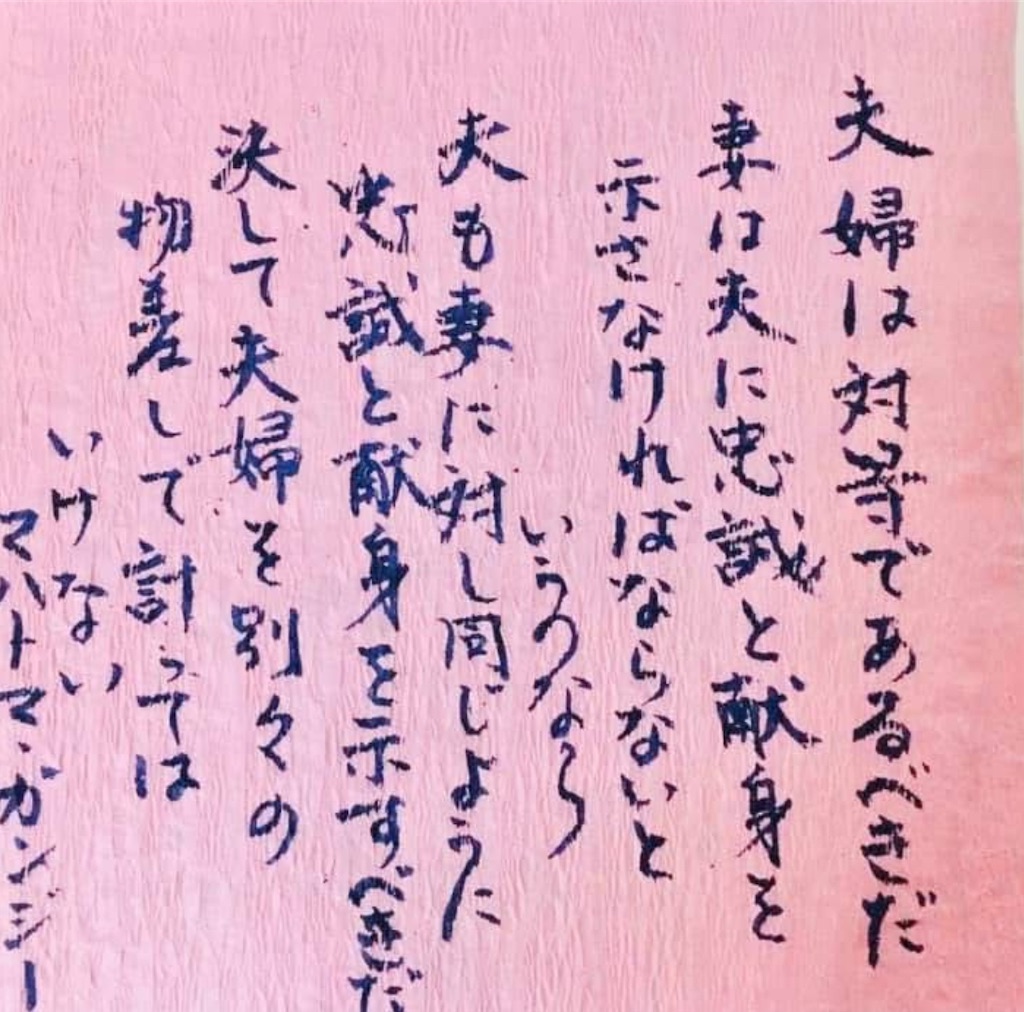 夫婦は対等であるべきだ
妻は夫に忠誠と献身を
示さなければならないと
いうのなら
夫も妻に対し同じように
忠誠と献身を示すべきだ
決して夫婦を別々の
物差しで計っては
いけない
マハトマ・ガンジー